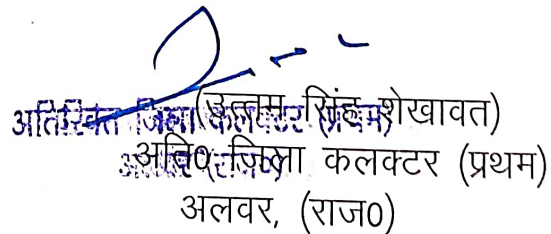 (उत्तम सिंह शेखावत)
अतिरिक्त जिला कलक्टर (प्रथम)
अति0 जिला कलक्टर (प्रथम)
अलवर, (राज0)